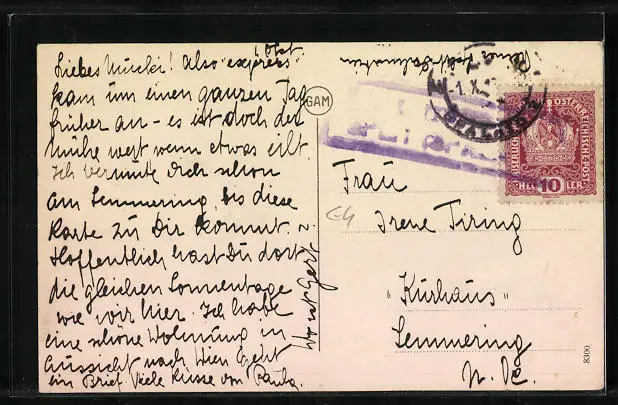 1. Okt.
Liebes Mucki! Also "express"
kam um einen ganzen Tag
früher an - es ist doch der
Mühe wert wenn etwas eilt.
Ich vermute Dich schon
am Semmering, bis diese
Karte zu Dir kommt.
Hoffentlich hast Du dort
die gleichen Sonnentage
wie wir hier. Ich habe
eine schöne Wohnung in
Aussicht nach Wien geht
ein Brief. Viele Küsse von Paula
Wo ist Gert?
GAM
-1.X.
KAISERLICHE KÖNIGLICHE ÖSTERREICHISCHE POST
10
HELLER
Frau
Irene Tiring
"Kurhaus"
Semmering
N. Oe.
8300